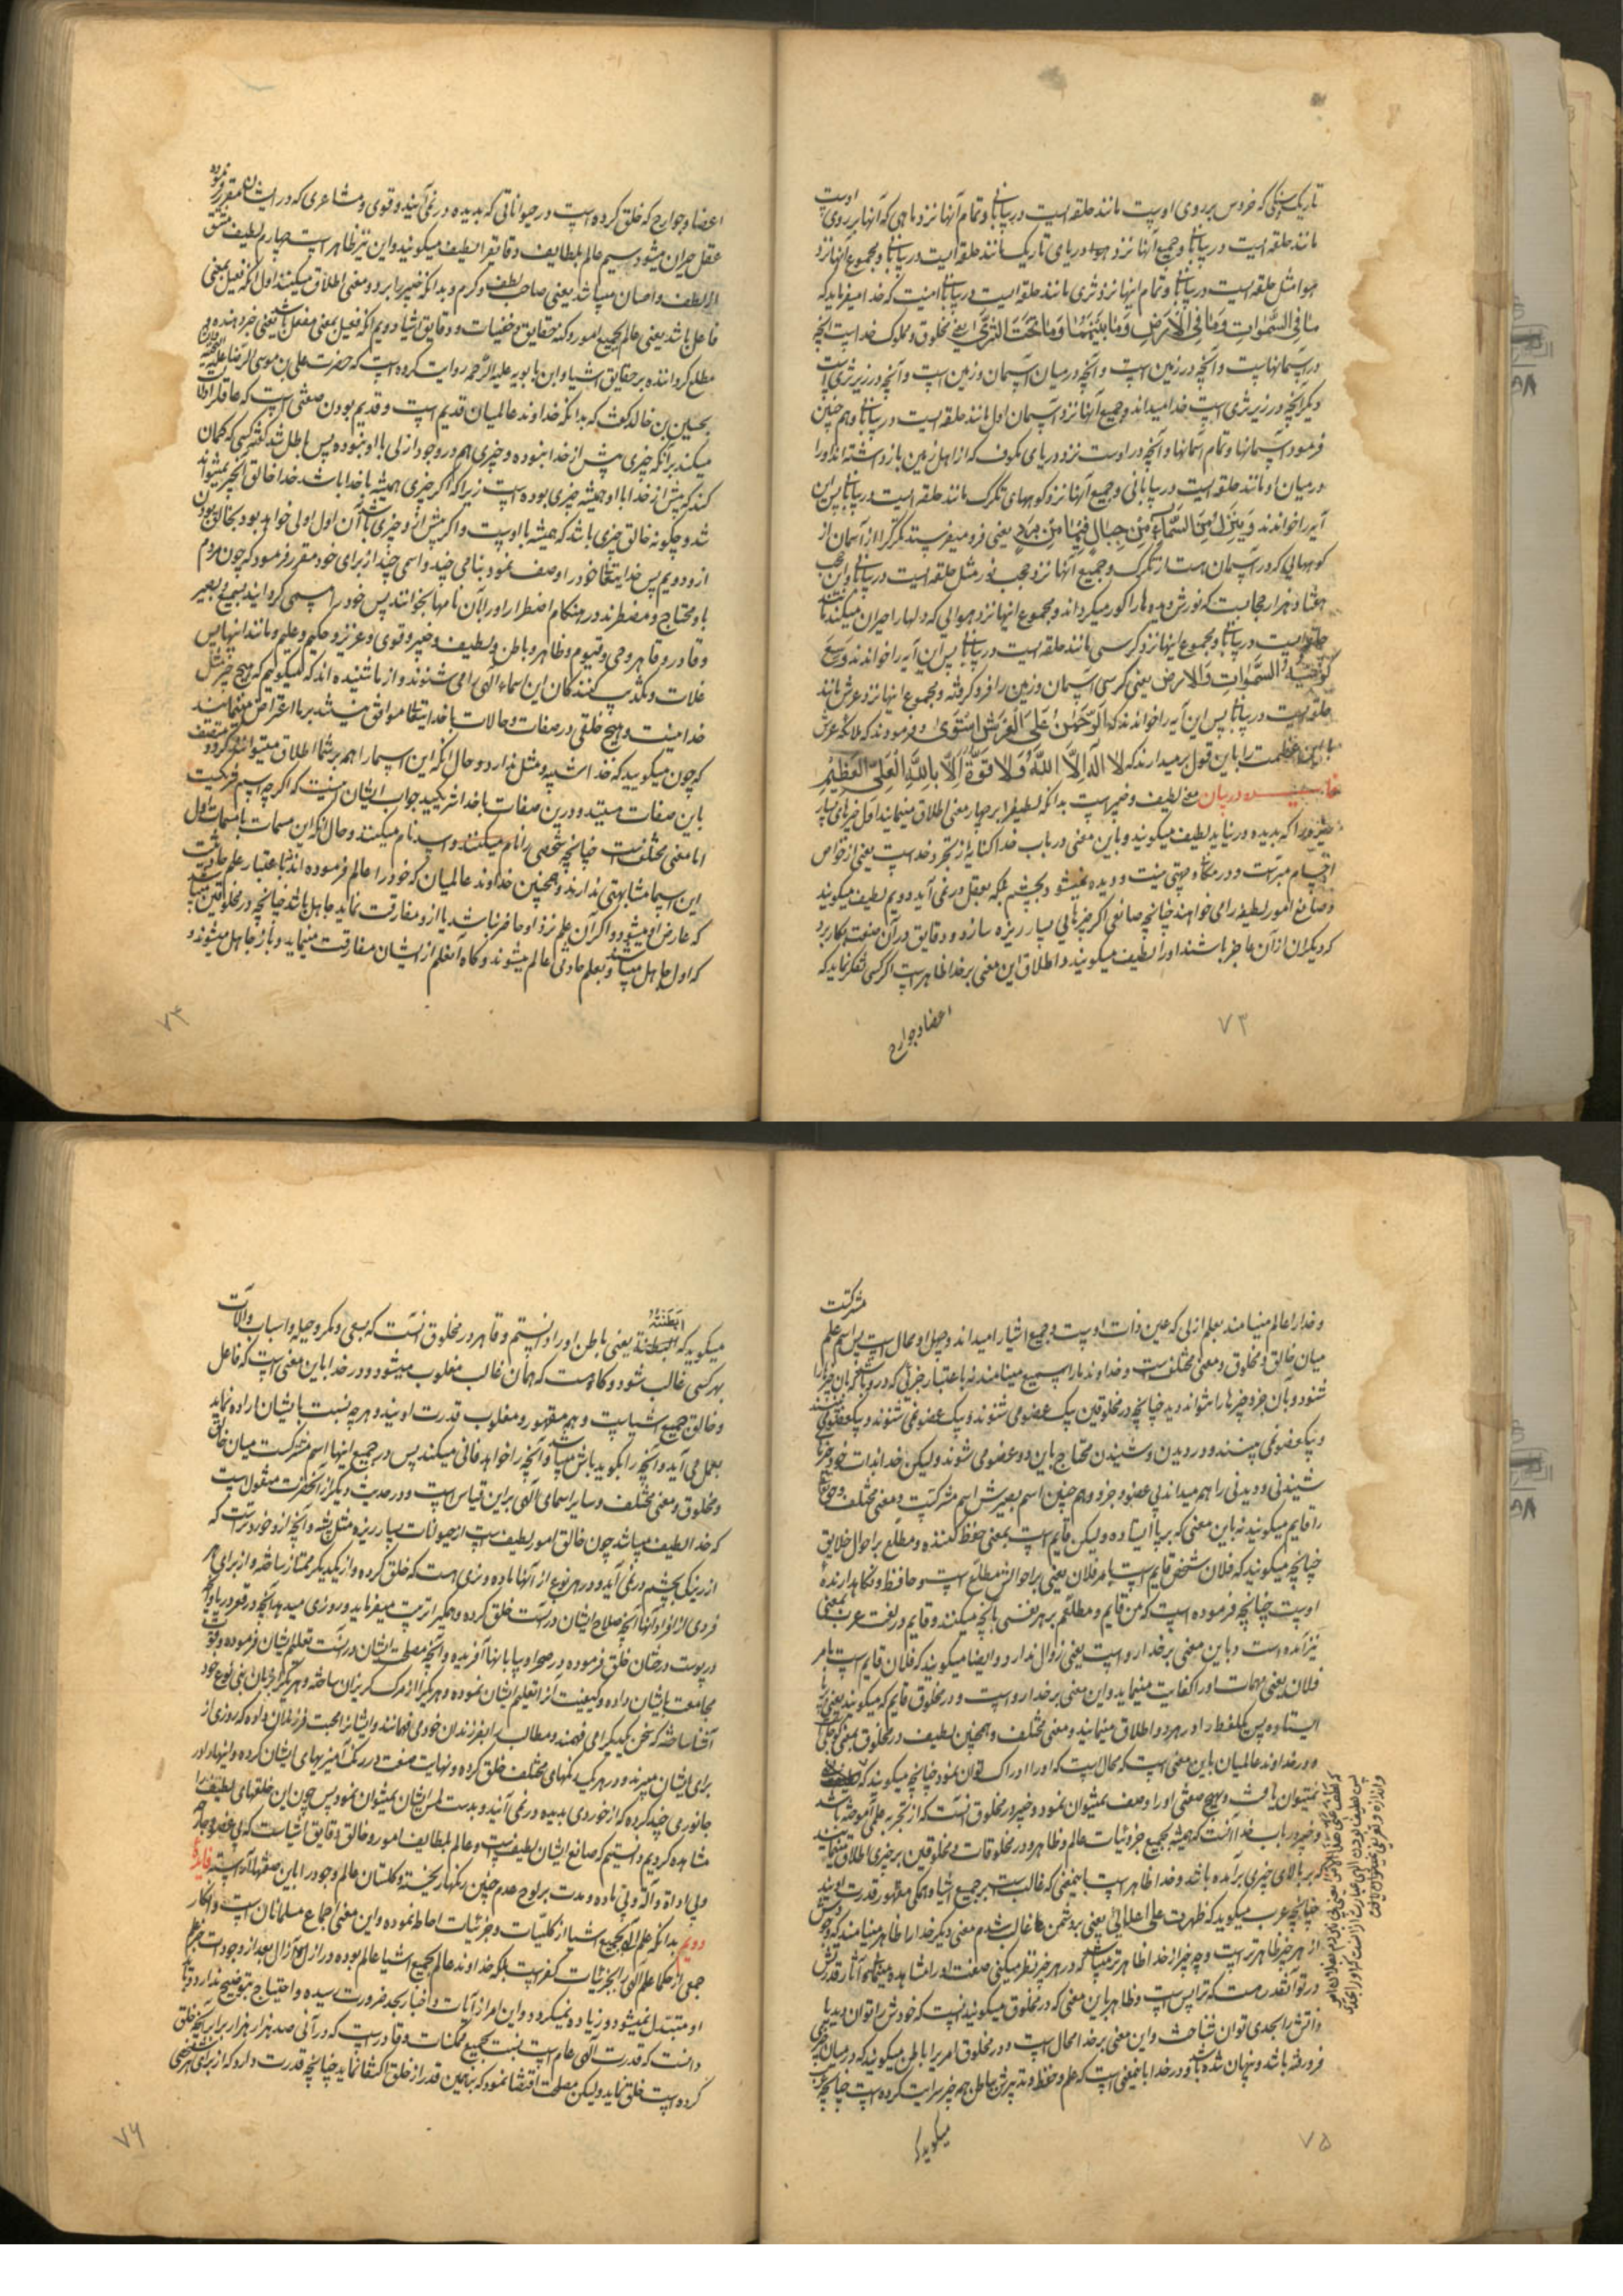 تاریک سنگی که خروس بر روی اوست مانند حلقه ایست در بیابانی و تمام آنها نزد ماهی که آنها بر روی اوست
مانند حلقه ایست در بیابانی و جمیع آنها نزد دریای تاریک مانند حلقه ایست در بیابانی و مجموع آنها نزد
هوا مثل حلقه ایست در بیابانی و تمام اینها نزد ثری مانند حلقه ایست در بیابانی اینست که خدا میفرماید که
ما فی السَّمواتِ وَمَا فِی الْاَرَضِ وَمَا بَیْنَهُمَا وَمَا تَحْتَ الثَّرَیٰ یعنی مخلوق و مملوک خداست آنچه
در آسمانهاست و آنچه در زمین است و آنچه در میان آسمان و زمین است و آنچه در زیر ثری است
دیگر آنچه در زیر ثری است خدا میداند و جمیع آنها نزد آسمان اول مانند حلقه ایست در بیابانی و هم چنین
فرمود آسمانها و تمام آسمانها و آنچه در اوست نزد دریای مکفوف که از اهل زمین باز داشته اند او را
در میان او مانند حلقه ایست در بیابانی و جمیع آنها نزد کوههای تگرگ مانند حلقه ایست در بیابانی پس این
آیه را خواندند وَیُنَزِّلُ مِنَ السَّمَاءِ مِنْ جِبَالٍ فِیهَا مِنْ بَرَدٍ یعنی فرو میفرستد تگرگ را از آسمان از
کوههایی که در آسمان هست از تگرگ و جمیع آنها نزد حجب نور مثل حلقه ایست در بیابانی و این حجب
هفتاد هزار حجابست که نورش دیده ها را کور میگرداند و مجموع اینها نزد هوایی که دلها را حیران میکند مانند
حلقه ایست در بیابانی و مجموع اینها نزد کرسی مانند حلقه ایست در بیابانی پس این آیه را خواندند وَسِعَ
کُرْسِیُّهُ السَّمٰوَاتِ وَالاَرضَ یعنی کرسی آسمان و زمین را فرو گرفته و مجموع اینها نزد عرش مانند
حلقه ایست در بیابانی پس این آیه را خواندند که اَلرَّحْمٰنُ عَلَی الْعَرْشِ اسْتَوَیٰ و فرمودند که ملائکه عرش
با این عظمت را باین قول برمیدارند که لا اله اِلَّا اللهُ وَلا قُوَّةَ اِلَّا بِاللهِ الْعَلِیِّ الْعَظِیْمِ
در بیان معنی لطیف و خبیر است بدانکه لطیف را بر چهار معنی اطلاق مینمایند اول چیزهای بسیار
ریزه را که بدیده درنیاید لطیف میگویند و باین معنی در باب خدا کنایه از تجرد خداست یعنی از خواص
اجسام مبرّاست و در مکان و جهتی نیست و دیده نمیشود بچشم بلکه بعقل درنمی آید دویم لطیف میگویند
و صانع امور لطیفه را می خواهند چنانچه صانعی اگر چیزهایی بسیار ریزه سازد و دقایق در آن صنعت بکار برد
که دیگران از آن عاجز باشند او را لطیف میگویند و اطلاق این معنی بر خدا ظاهر است اگر کسی تفکر نماید که
اعضا و جوارح
۷۳
اعضا و جوارح که خلق کرده است در حیواناتی که بدیده درنمی آیند و قوی و مشاعری که در ایشان مقرر فرموده
عقل حیران میشود سیم عالم بلطایف و دقایق را لطیف میگویند و این نیز ظاهر است چهارم لطیف مشتق
از لطف و احسان میباشد یعنی صاحب لطف و کرم و بدانکه خبیر را بر دو معنی اطلاق میکنند اول آنکه فعیل بمعنی
فاعل باشد یعنی عالم بجمیع امور و کنه حقایق و خفیات و دقایق اشیا دویم آنکه فعیل بمعنی مفعل باشد یعنی خبر دهنده و
مطلع گرداننده بر حقایق اشیا و ابن بابویه علیه الرحمه روایت کرده است که حضرت علی بن موسی الرضا علیه
بحسین بن خالد گفت که بدانکه خداوند عالمیان قدیم است و قدیم بودن صفتی است که عاقل را دلالت
میکند بر آنکه چیزی پیش از خدا نبوده و چیزی هم در وجود ازلی با او نبوده پس باطل شد گفته کسی که گمان
کند که پیش از خدا یا با او همیشه چیزی بوده است زیرا که اگر چیزی همیشه با خدا باشد خدا خالق آنچیز نمیتواند
شد و چگونه خالق چیزی باشد که همیشه با اوست و اگر پیش از او چیزی باشد آن اول اولی خواهد بود بخالق بودن
از دویم پس خدایتعالی خود را وصف نمود بنامی چند و اسمی چند از برای خود مقرر فرمود که چون مردم
باو محتاج و مضطرند در هنگام اضطرار او را بآن نامها بخوانند پس خود را مسمی گردانید بسمیع و بصیر
و قادر و قاهر و حی و قیوم و ظاهر و باطن و لطیف و خبیر و قوی و عزیز و حکیم و علیم و مانند اینها پس
غلات و تکذیب کنندگان این اسماء الهی را می شنوند و از ما شنیده اند که میگوییم که هیچ چیز مثل
خدا نیست و هیچ خلقی در صفات و حالات با خدایتعالی موافق نمیشد بر ما اعتراض مینمایند
که چون میگویید که خدا شبیه و مثل ندارد و حال آنکه این اسما را هم بر شما اطلاق میتوان کرد و متصف
باین صفات هستید و در این صفات با خدا شریکید جواب ایشان اینست که اگر چه اسم شریکست
اما معنی مختلفست چنانچه شخصی را نام میکنند و اسد نام میکنند و حال آنکه این مسمات با مسمات اول
این اسما مشابهتی ندارند و همچنین خداوند عالمیان که خود را عالم فرموده اند نه باعتبار علم حادثیست
که عارض او میشود و اگر آن علم نزد او حاضر نباشد یا از او مفارقت نماید جاهل باشد چنانچه در مخلوقین میباشد
که اول جاهل میباشند و بعلم حادثی عالم میشوند و گاه آن علم از ایشان مفارقت مینماید و باز جاهل میشوند و
۷۴
و خدا را عالم مینامند بعلم ازلی که عین ذات اوست و جمیع اشیا را میداند و جهل او محال است پس اسم علم مشترکست
میان خالق و مخلوق و معنی مختلفست و خداوند ما را سمیع مینامند نه باعتبار جزئی که در او باشد که بآن چیز را
شنود و بآن جزو چیزها را نتواند دید چنانچه در مخلوقین یک عضو می شنوند و یک عضو نمی شنوند و یک عضو می بینند
و یک عضو نمی بینند و در دیدن و شنیدن محتاج باین دو عضو می شوند ولیکن خدا بذات خود چیزهای
شنیدنی و دیدنی را هم میداند بی عضو و جزو و هم چنین اسم بصیرش اسم مشترکست و معنی مختلف
را قایم میگویند نه باین معنی که برپا ایستاده ولیکن قایم است بمعنی حفظ کننده و مطلع بر احوال خلایق
چنانچه میگویند که فلان شخص قایم است بامر فلان یعنی بر احوالش مطلع است و حافظ و نگاهدارنده
اوست چنانچه فرموده است که من قایم و مطلعم بر هر نفسی بآنچه میکنند و قایم در لغت عرب بمعنی
نیز آمده است و باین معنی بر خدا رواست یعنی زوال ندارد و ایضا میگویند که فلان قایم است بامر
فلان یعنی مهمات او را کفایت مینماید و این معنی بر خدا رواست و در مخلوق قایم که میگویند یعنی برپا
ایستاده پس یک لفظ را در هر دو اطلاق مینمایند و معنی مختلف و همچنین لطیف در مخلوق بمعنی
و در خداوند عالمیان باین معنی است که محال است که او را ادراک توان نمود چنانچه میگویند که
نمیتوان یافت و هیچ صفتی او را وصف نمیتوان نمود و خبیر در مخلوق آنست که از تجربه علمی آموخته باشد
و خبیر در باب خدا آنست که همیشه بجمیع جزئیات عالم و ظاهر در مخلوقات و مخلوقین بر چیزی اطلاق مینمایند
که بر بالای چیزی برآمده باشد و خدا ظاهر است باینمعنی که غالب است بر جمیع اشیا و همگی مقهور قدرت اویند
چنانچه عرب میگوید که ظهرت علی اعدائی یعنی بر دشمن غالب شدم معنی دیگر خدا را ظاهر مینامند که وجودش
از هر چیز ظاهرتر است و چه چیز از خدا ظاهرتر میباشد که در هر چیز نظر میکنی صنعت او را مشاهده مینمائی آثار قدرتش
در تو آنقدر هست که ترا بس است و ظاهر باین معنی که در مخلوق میگویند آنست که خودش را توان دید یا
ذاتش را بحدی توان شناخت و این معنی بر خدا محال است و در مخلوق امر را باطن میگویند که در میان چیزی
فرو رفته باشد و پنهان شده باشد و در خدا باینمعنی است که علم و حفظ و تدبیرش بباطن همه چیز سرایت کرده است چنانچه عرب
میگوید که
۷۵
میگوید که ابطنته یعنی باطن او را دانستم و قاهر در مخلوق آنست که بسعی و مکر و حیله و اسباب و آلات
بهر کسی غالب شود و گاه هست که همان غالب مغلوب میشود و در خدا باین معنی است که فاعل
و خالق جمیع اشیاست و همه مقهور و مغلوب قدرت اویند و هر چه نسبت بایشان اراده نماید
بعمل می آید و آنچه را بگوید باش میباشد و آنچه را خواهد فانی میکند پس در جمیع اینها اسم مشترکست میان خالق
و مخلوق و معنی مختلف و سایر اسمای الهی بر این قیاس است و در حدیث دیگر از آنحضرت منقول است
که خدا لطیف میباشد چون خالق امور لطیف است از حیوانات بسیار ریزه مثل پشه و آنچه از او خردتر است که
از ریزگی بچشم درنمی آید و در هر نوع از آنها ماده و نری هست که خلق کرده و از یکدیگر ممتاز ساخته و از برای هر
فردی از افراد آنها آنچه صلاح ایشان در آنست خلق کرده و همگی را تربیت میفرماید و روزی میدهد آنچه در قعر دریا و آنچه
در پوست درختان خلق فرموده و در صحرا و بیابانها آفریده و آنچه مصلحت ایشان در آنست تعلیم ایشان فرموده و قوت
مجامعت بایشان داده و کیفیت آنرا تعلیم ایشان نموده و هر یک را از مرگ گریزان ساخته و هر یک را بزبان بنی نوع خود
آشنا ساخته که سخن یکدیگر را می فهمند و مطالب را بفرزندان خود می فهمانند و ایشانرا محبت فرزندان داده که روزی از
برای ایشان میبرند و در هر یک رنگهای مختلف خلق کرده و نهایت صنعت در رنگ آمیزیهای ایشان کرده و اینها را در
جانوری چند کرده که از خوردی بدیده درنمی آیند و بدست لمس ایشان نمیتوان نمود پس چون این خلقتهای لطیف را
مشاهده کردیم دانستیم که صانع ایشان لطیف است و عالم بلطایف امور و خالق دقایق اشیاست که بی عضو و جارحه
و بی اداة و آلة و بی ماده و مدت بر لوح عدم چنین رنگها ریخته و گلستان عالم وجود را باین صفتها آراسته فایده
دویم بدانکه علم الهی بجمیع اشیا از کلیّات و جزئیات احاطه نموده و این معنی اجماع مسلمانان است و انکار
جمعی از حکما علم الهی را بجزئیات کفر است بلکه خداوند عالم بجمیع اشیا عالم بوده در ازل الازال و بعد از وجود اشیا علم
او متبدل نمیشود و زیاده نمیگردد و این امر از آیات و اخبار بحد ضرورت رسیده و احتیاج بتوضیح ندارد و
دانست که قدرت الهی عام است نسبت بجمیع ممکنات و قادر است که در آنی صد هزار هزار برابر آنچه خلق
کرده است خلق نماید ولیکن مصلحت اقتضا نمود که بهمین قدر از خلق اکتفا نماید چنانچه قدرت دارد که از برای هر شخصی
۷۶